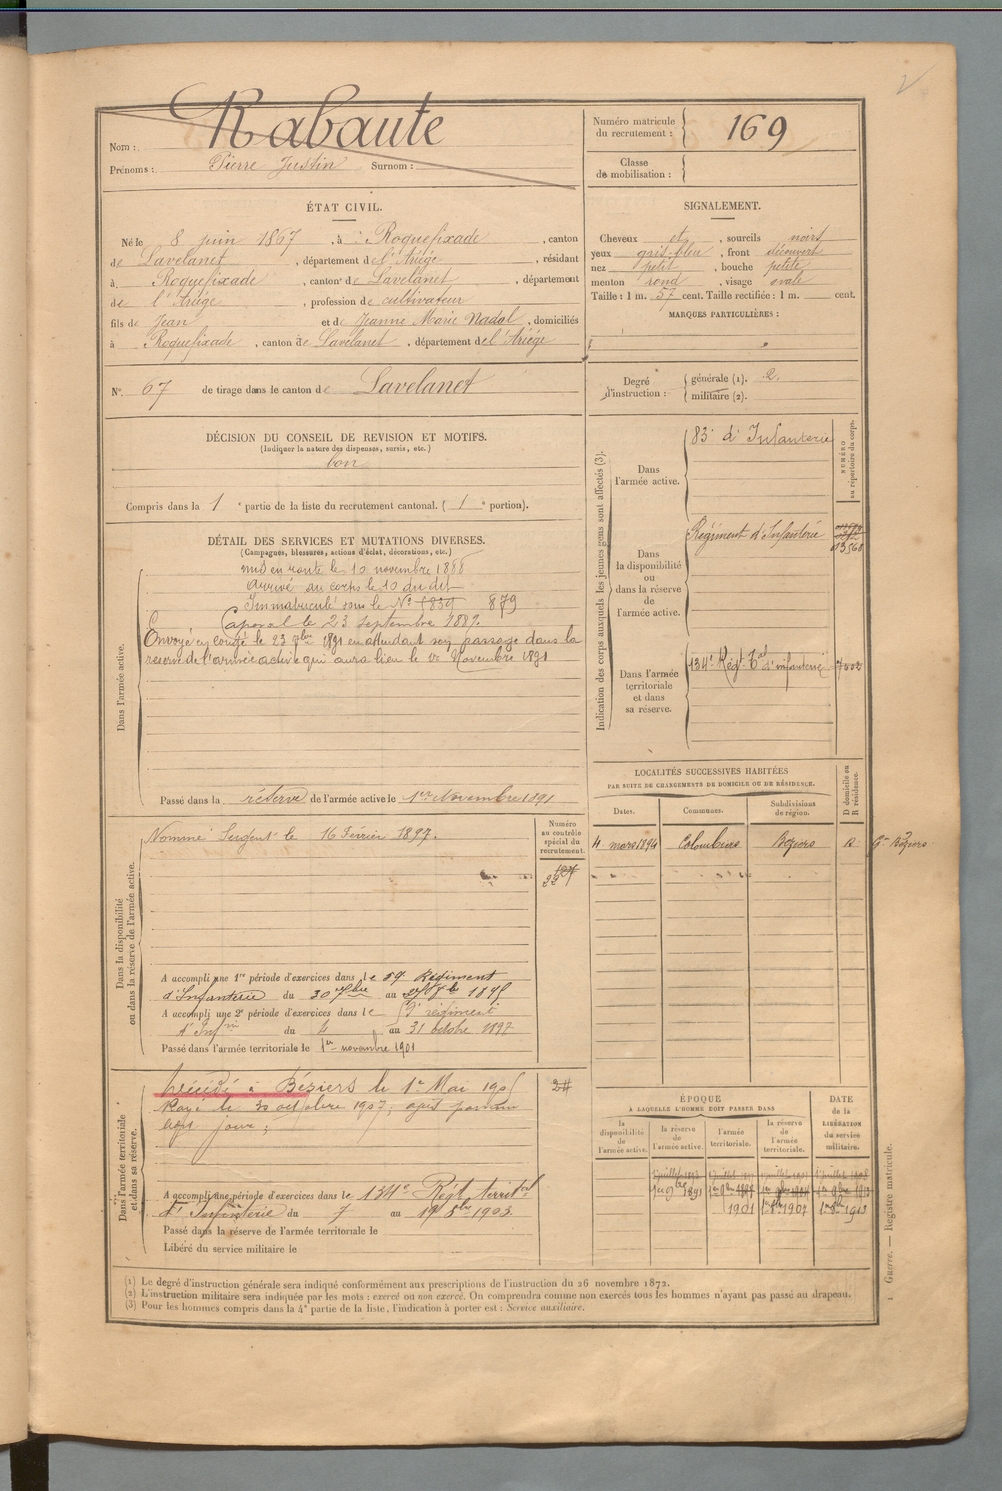 Nom : Rabaute
Prénoms : Pierre Justin Surnom :
Numéro matricule du recrutement : 169
Classe de mobilisation :
ÉTAT CIVIL.
Né le 8 juin 1867, à Roquefixade, canton
de Lavelanet, département de l'Ariége, résidant
à Roquefixade, canton de Lavelanet, département
de l'Ariége, profession de cultivateur
fils de Jean et de Jeanne Marie Nadal, domiciliés
à Roquefixade, canton de Lavelanet, département de l'Ariége
SIGNALEMENT.
Cheveux et, sourcils noirs
yeux gris-bleu, front découvert
nez petit, bouche petite
menton rond, visage ovale
Taille : 1 m. 57 cent. Taille rectifiée : 1 m. cent.
MARQUES PARTICULIÈRES :
N° 67 de tirage dans le canton de Lavelanet
Degré d'instruction : générale (1). 2.
militaire (2).
DÉCISION DU CONSEIL DE REVISION ET MOTIFS.
(Indiquer la nature des dispenses, sursis, etc.)
bon
Compris dans la 1e partie de la liste du recrutement cantonal. (1e portion).
DÉTAIL DES SERVICES ET MUTATIONS DIVERSES.
(Campagnes, blessures, actions d'éclat, décorations, etc.)
Dans l'armée active.
mis en route le 10 novembre 1888
arrivé au corps le 10 du dit
Immatriculé sous le N° 1839 879
Caporal le 23 septembre 1889.
Envoyé en congé le 23 7bre 1891 en attendant son passage dans la
réserve de l'armée active qui aura lieu le 1er Novembre 1891
Passé dans la réserve de l'armée active le 1er Novembre 1891
Indication des corps auxquels les jeunes gens sont affectés (3).
NUMÉRO au répertoire du corps.
Dans l'armée active.
83e d'Infanterie
Dans la disponibilité ou dans la réserve de l'armée active.
Régiment d'Infanterie
Dans l'armée territoriale et dans sa réserve.
134e Régt Tal d'infanterie
LOCALITÉS SUCCESSIVES HABITÉES
PAR SUITE DE CHANGEMENTS DE DOMICILE OU DE RÉSIDENCE.
Dates. Communes. Subdivisions de région. D domicile ou R résidence.
4 mars 1894 Colombiers Béziers R
Dans la disponibilité ou dans la réserve de l'armée active.
Numéro au contrôle spécial du recrutement.
Nommé Sergent le 16 Février 1897.
A accompli une 1re période d'exercices dans le 59 Régiment
d'Infanterie du 30 7bre au
A accompli une 2e période d'exercices dans le régiment
d'Infrie du 4 au 31 octobre 1897
Passé dans l'armée territoriale le 1er novembre 1901
Dans l'armée territoriale et dans sa réserve.
Décédé à Béziers le 1er Mai 1905
Rayé le 30 octobre 1907,
jour ;
A accompli une période d'exercices dans le 134e Régt territal
d'Infanterie du 7 au 19 1903.
Passé dans la réserve de l'armée territoriale le
Libéré du service militaire le
ÉPOQUE
À LAQUELLE L'HOMME DOIT PASSER DANS
la disponibilité de l'armée active.
la réserve de l'armée active.
l'armée territoriale.
la réserve de l'armée territoriale.
DATE de la LIBÉRATION du service militaire.
1er 9bre 1891 1er 9bre 1897
1901 1907 1913
(1) Le degré d'instruction générale sera indiqué conformément aux prescriptions de l'instruction du 26 novembre 1872.
(2) L'instruction militaire sera indiquée par les mots : exercé ou non exercé. On comprendra comme non exercés tous les hommes n'ayant pas passé au drapeau.
(3) Pour les hommes compris dans la 4e partie de la liste, l'indication à porter est : Service auxiliaire.
Guerre. — Registre matricule.